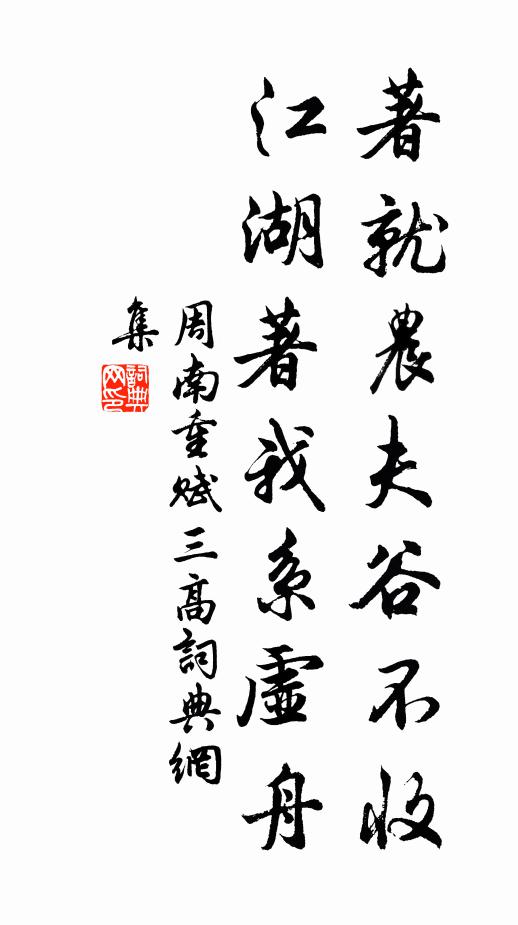 著就農夫谷不收
江湖著我系虛舟
周南重賦三高詞典網
集
詞典网印